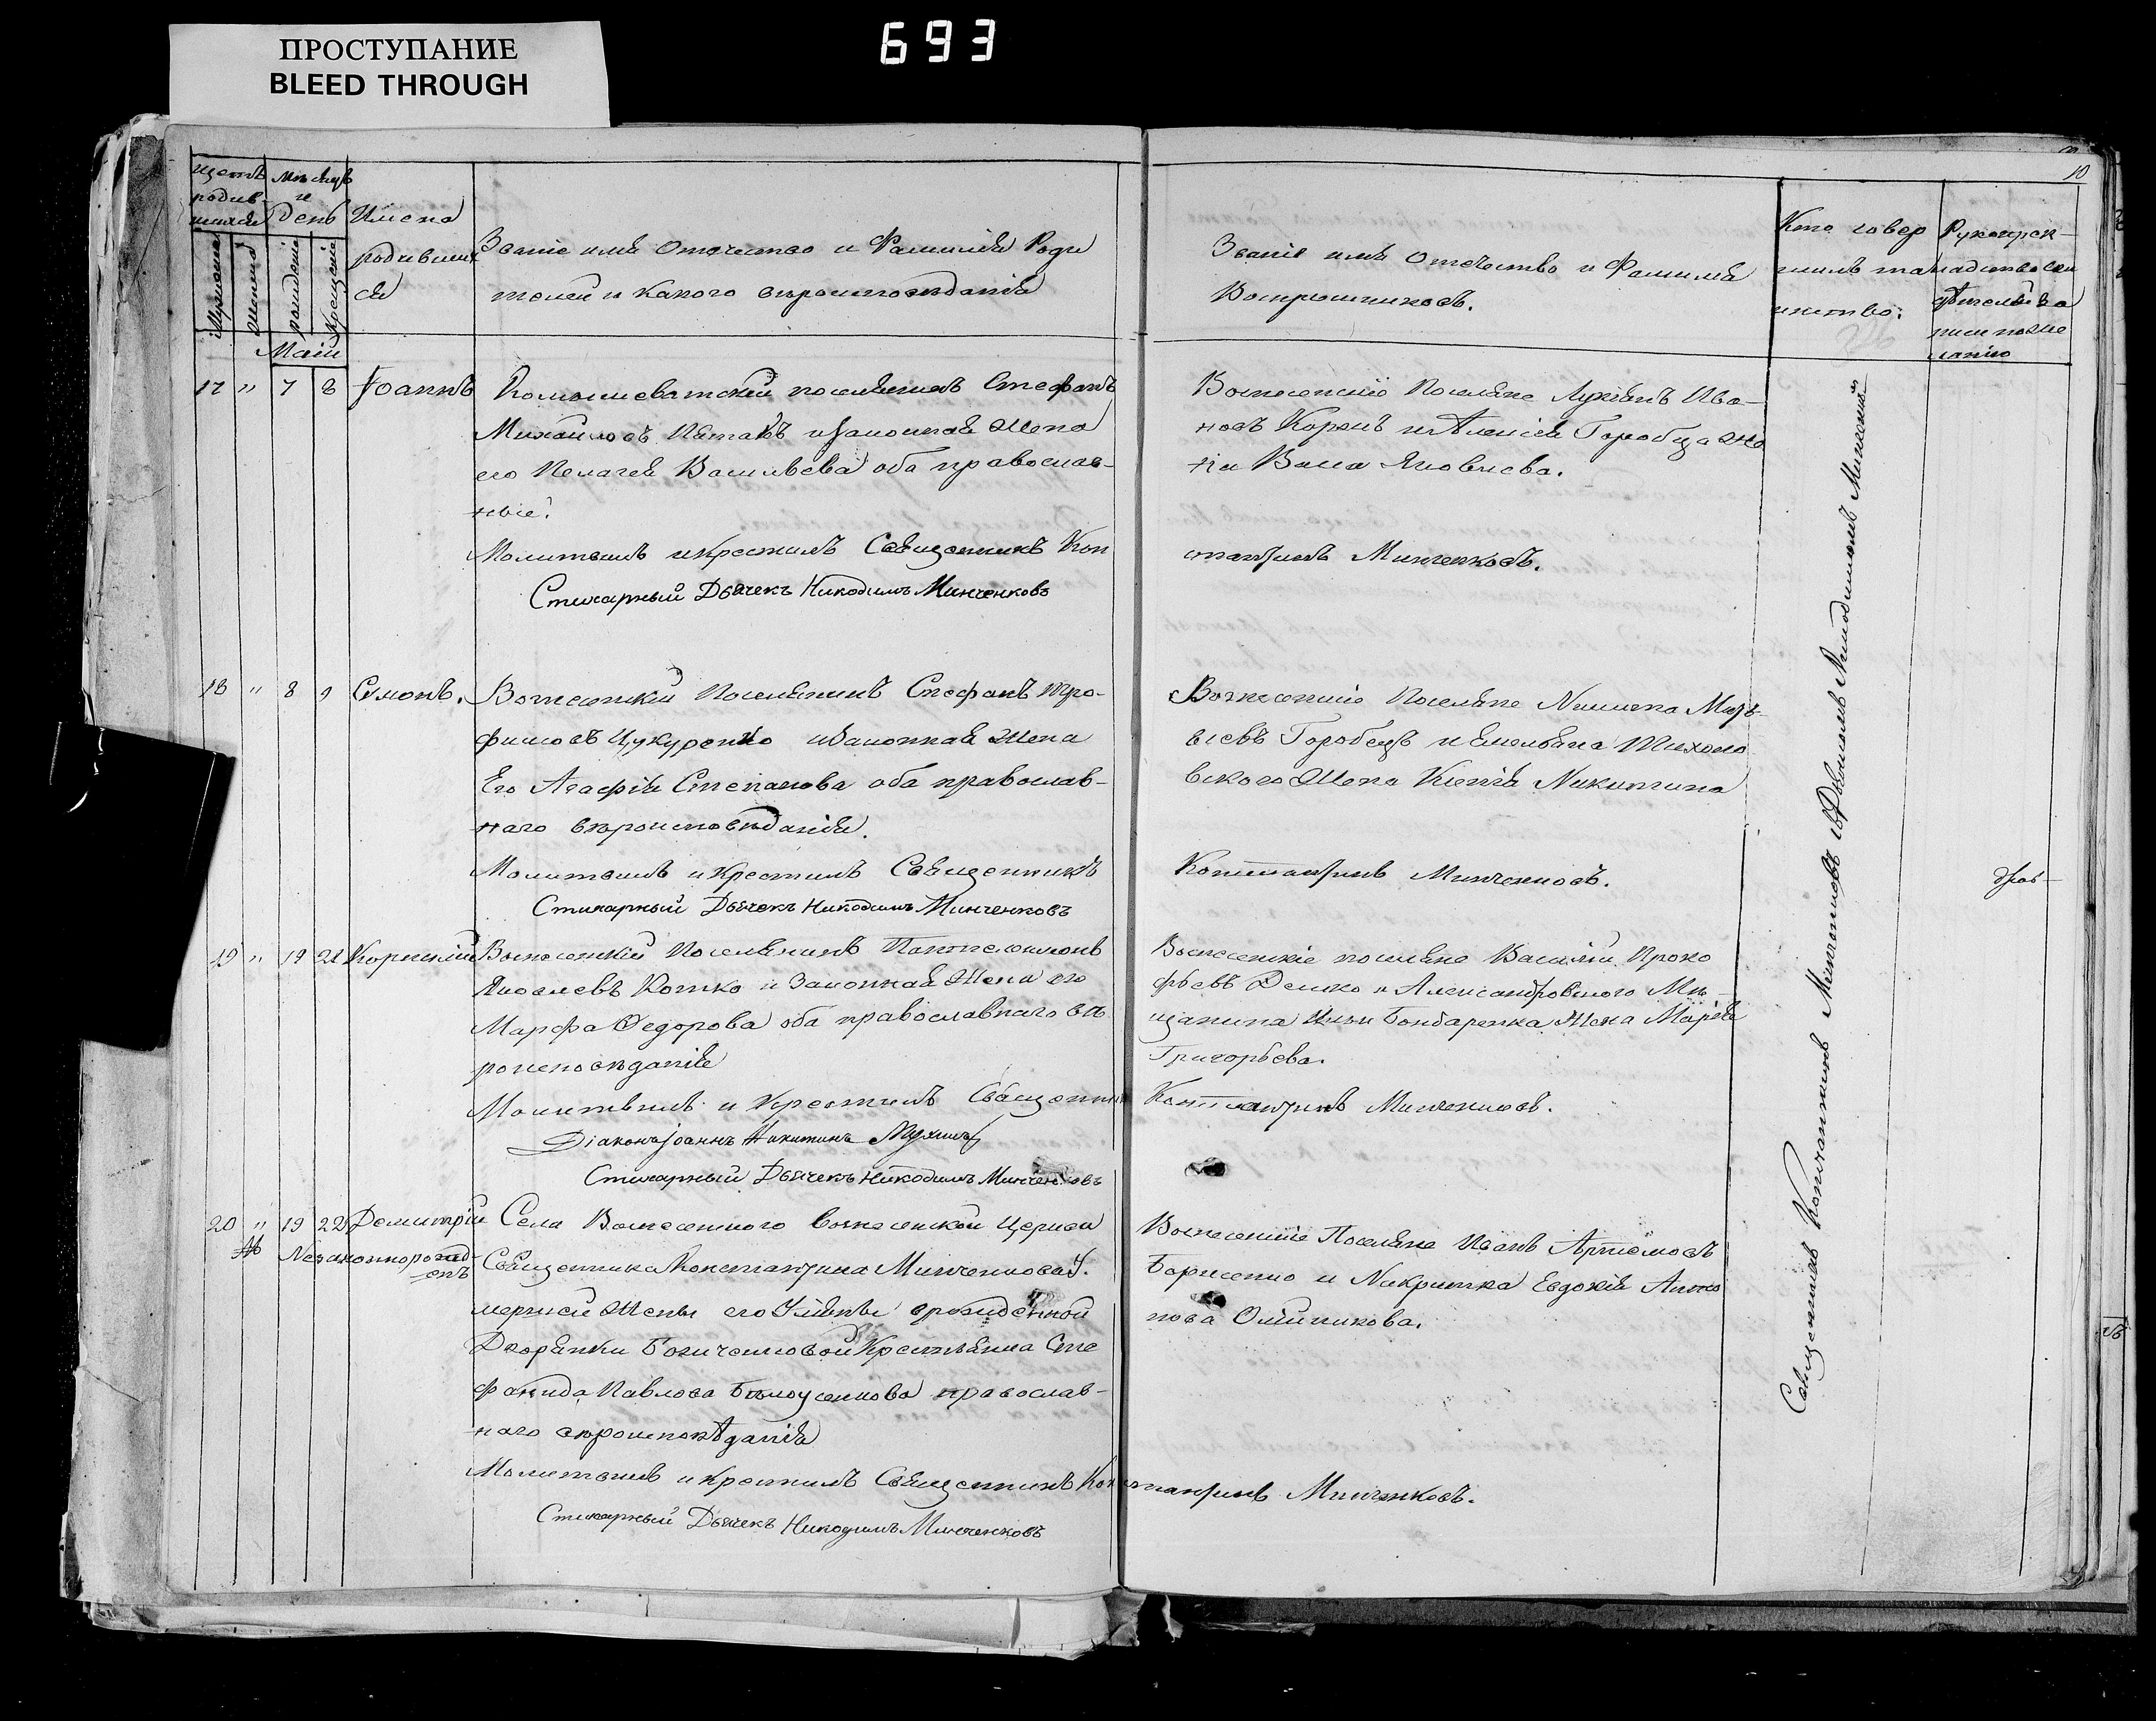 ПРОСТУПАНИЕ
BLEED THROUGH
693
10
Щетъ родив-шихся
Мѣсяцъ и День
Имена родившихся
Званіе имя Отечество и Фамилія Роди
телей и Какого вѣроисповѣданія
Званіе имя Отечество и Фамилія
Воспрiемниковъ.
Кто совер
шилъ таинство.
Рукоприк-
ладство сви
дѣтелей за
писи по же
ланію
Мужеска
Женска
рожденія
крещенія
Маій
17 " 7 8 Іоаннъ
Комышеватскій поселянинъ Стефанъ
Михайловъ Пятакъ и законная жена
его Пелагея Васильева оба православ-
ные.
Молитвилъ и крестилъ Священникъ Кон
Стихарный Дьячекъ Никодимъ Минченковъ
Вознесенскіе Поселяне Лукіянъ Ива-
новъ Коржъ и Алексія Горобца же
на Васса Яковлева.
стантинъ Минченковъ.
18 " 8 9 Симонъ.
Вознесенскій Поселянинъ Стефанъ Тро-
фимовъ Цукуренко и Законная Жена
Его Агафія Степанова оба православ-
наго вѣроисповѣданія.
Молитвилъ и Крестилъ Священникъ
Стихарный Дьячекъ Никодимъ Минченковъ
Вознесенскіе Поселяне Никита
Горобецъ и Емельяна Тихоно
вского Жена Ксенія Никитина
Константинъ Минченковъ.
19 " 19 21 Корнилій
Вознесенскій Поселянинъ Пантелеимонъ
Яковлевъ Котко и Законная Жена его
Марфа Федорова оба православнаго вѣ
роисповѣданія
Молитвилъ и Крестилъ Священникъ
Діаконъ Іоаннъ Никитинъ
Стихарный Дьячекъ Никодимъ Минченковъ
Вознесенскіе поселяне Василій Проко
фьевъ Демко и Александровского Мѣ-
щанина Ильи Бондаренка Жена Марія
Григорьева.
Константинъ Минченковъ.
20 " 19 22 Демитрій
Незаконнорожд-
енъ
Села Вознесенского вознесенской Церкви
Священника Константина Минченкова У.
мершей Жены его Уліяны урожденной
Дворянки Крестьянка Сте
фанида Павлова Бѣлоусенкова православ-
наго вѣроисповѣданія
Молитвилъ и крестилъ Священникъ Кон
Стихарный Дьячекъ Никодимъ Минченковъ
Вознесенскіе Поселяне Иванъ Артёмовъ
Борисенко и Евдокія Анто
нова Олійникова.
стантинъ Минченковъ.
Священникъ Константинъ Минченковъ съ Дьячкомъ Никодимомъ Минченк